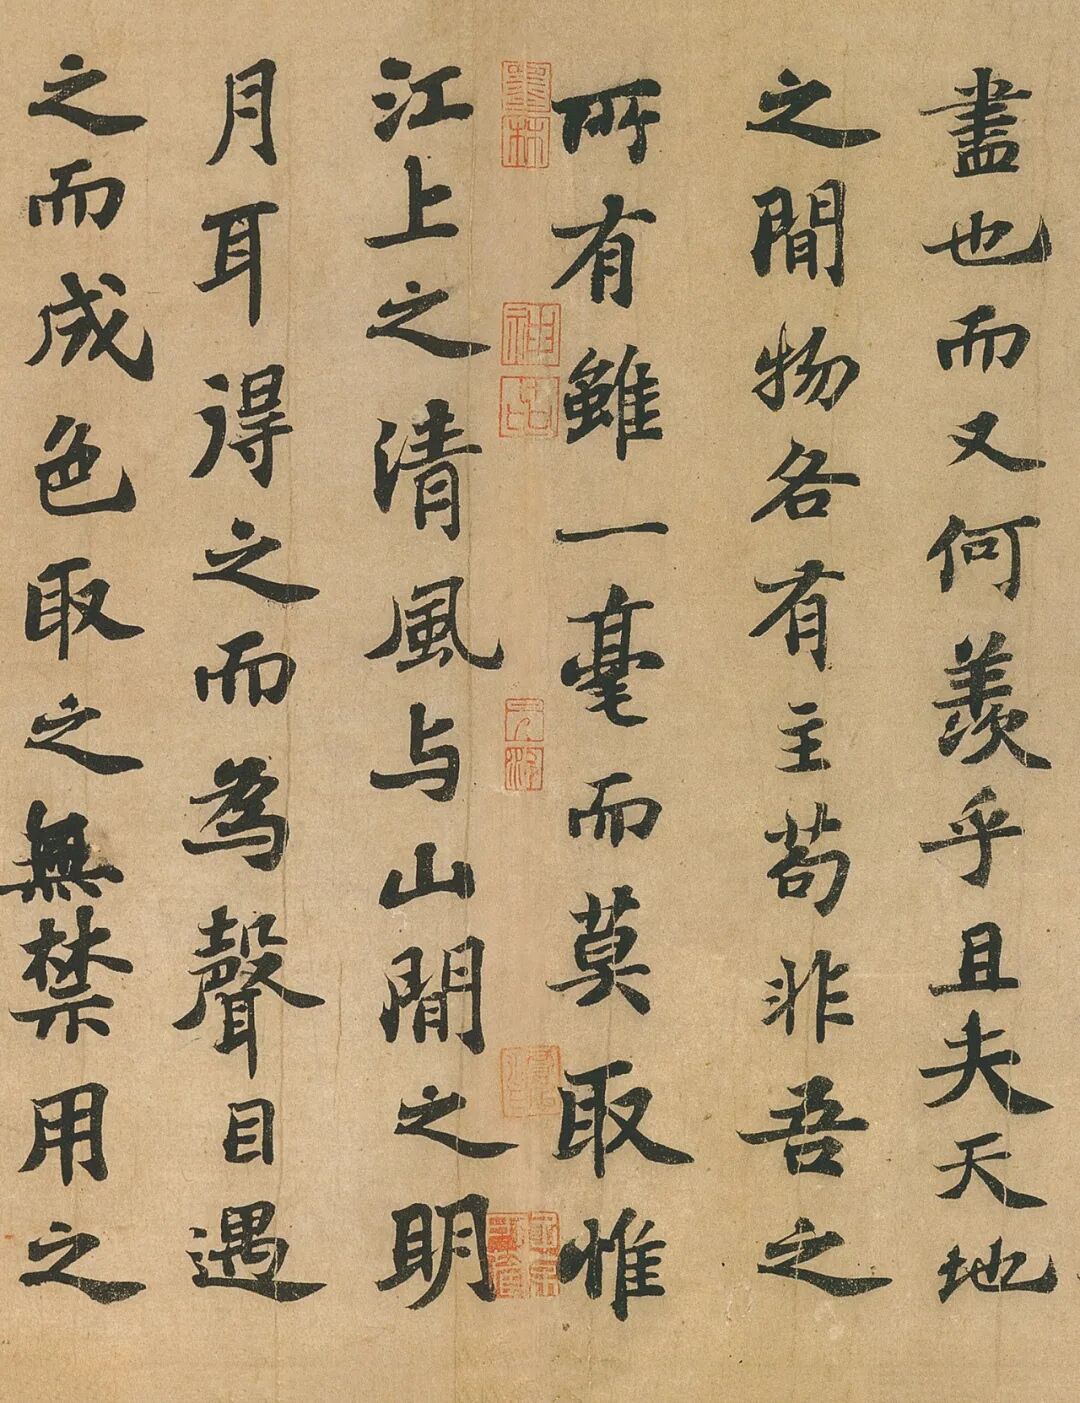 盡也而又何羨乎且夫天地
之間物各有主苟非吾之
所有雖一毫而莫取惟
江上之清風与山間之明
月耳得之而為聲目遇
之而成色取之無禁用之